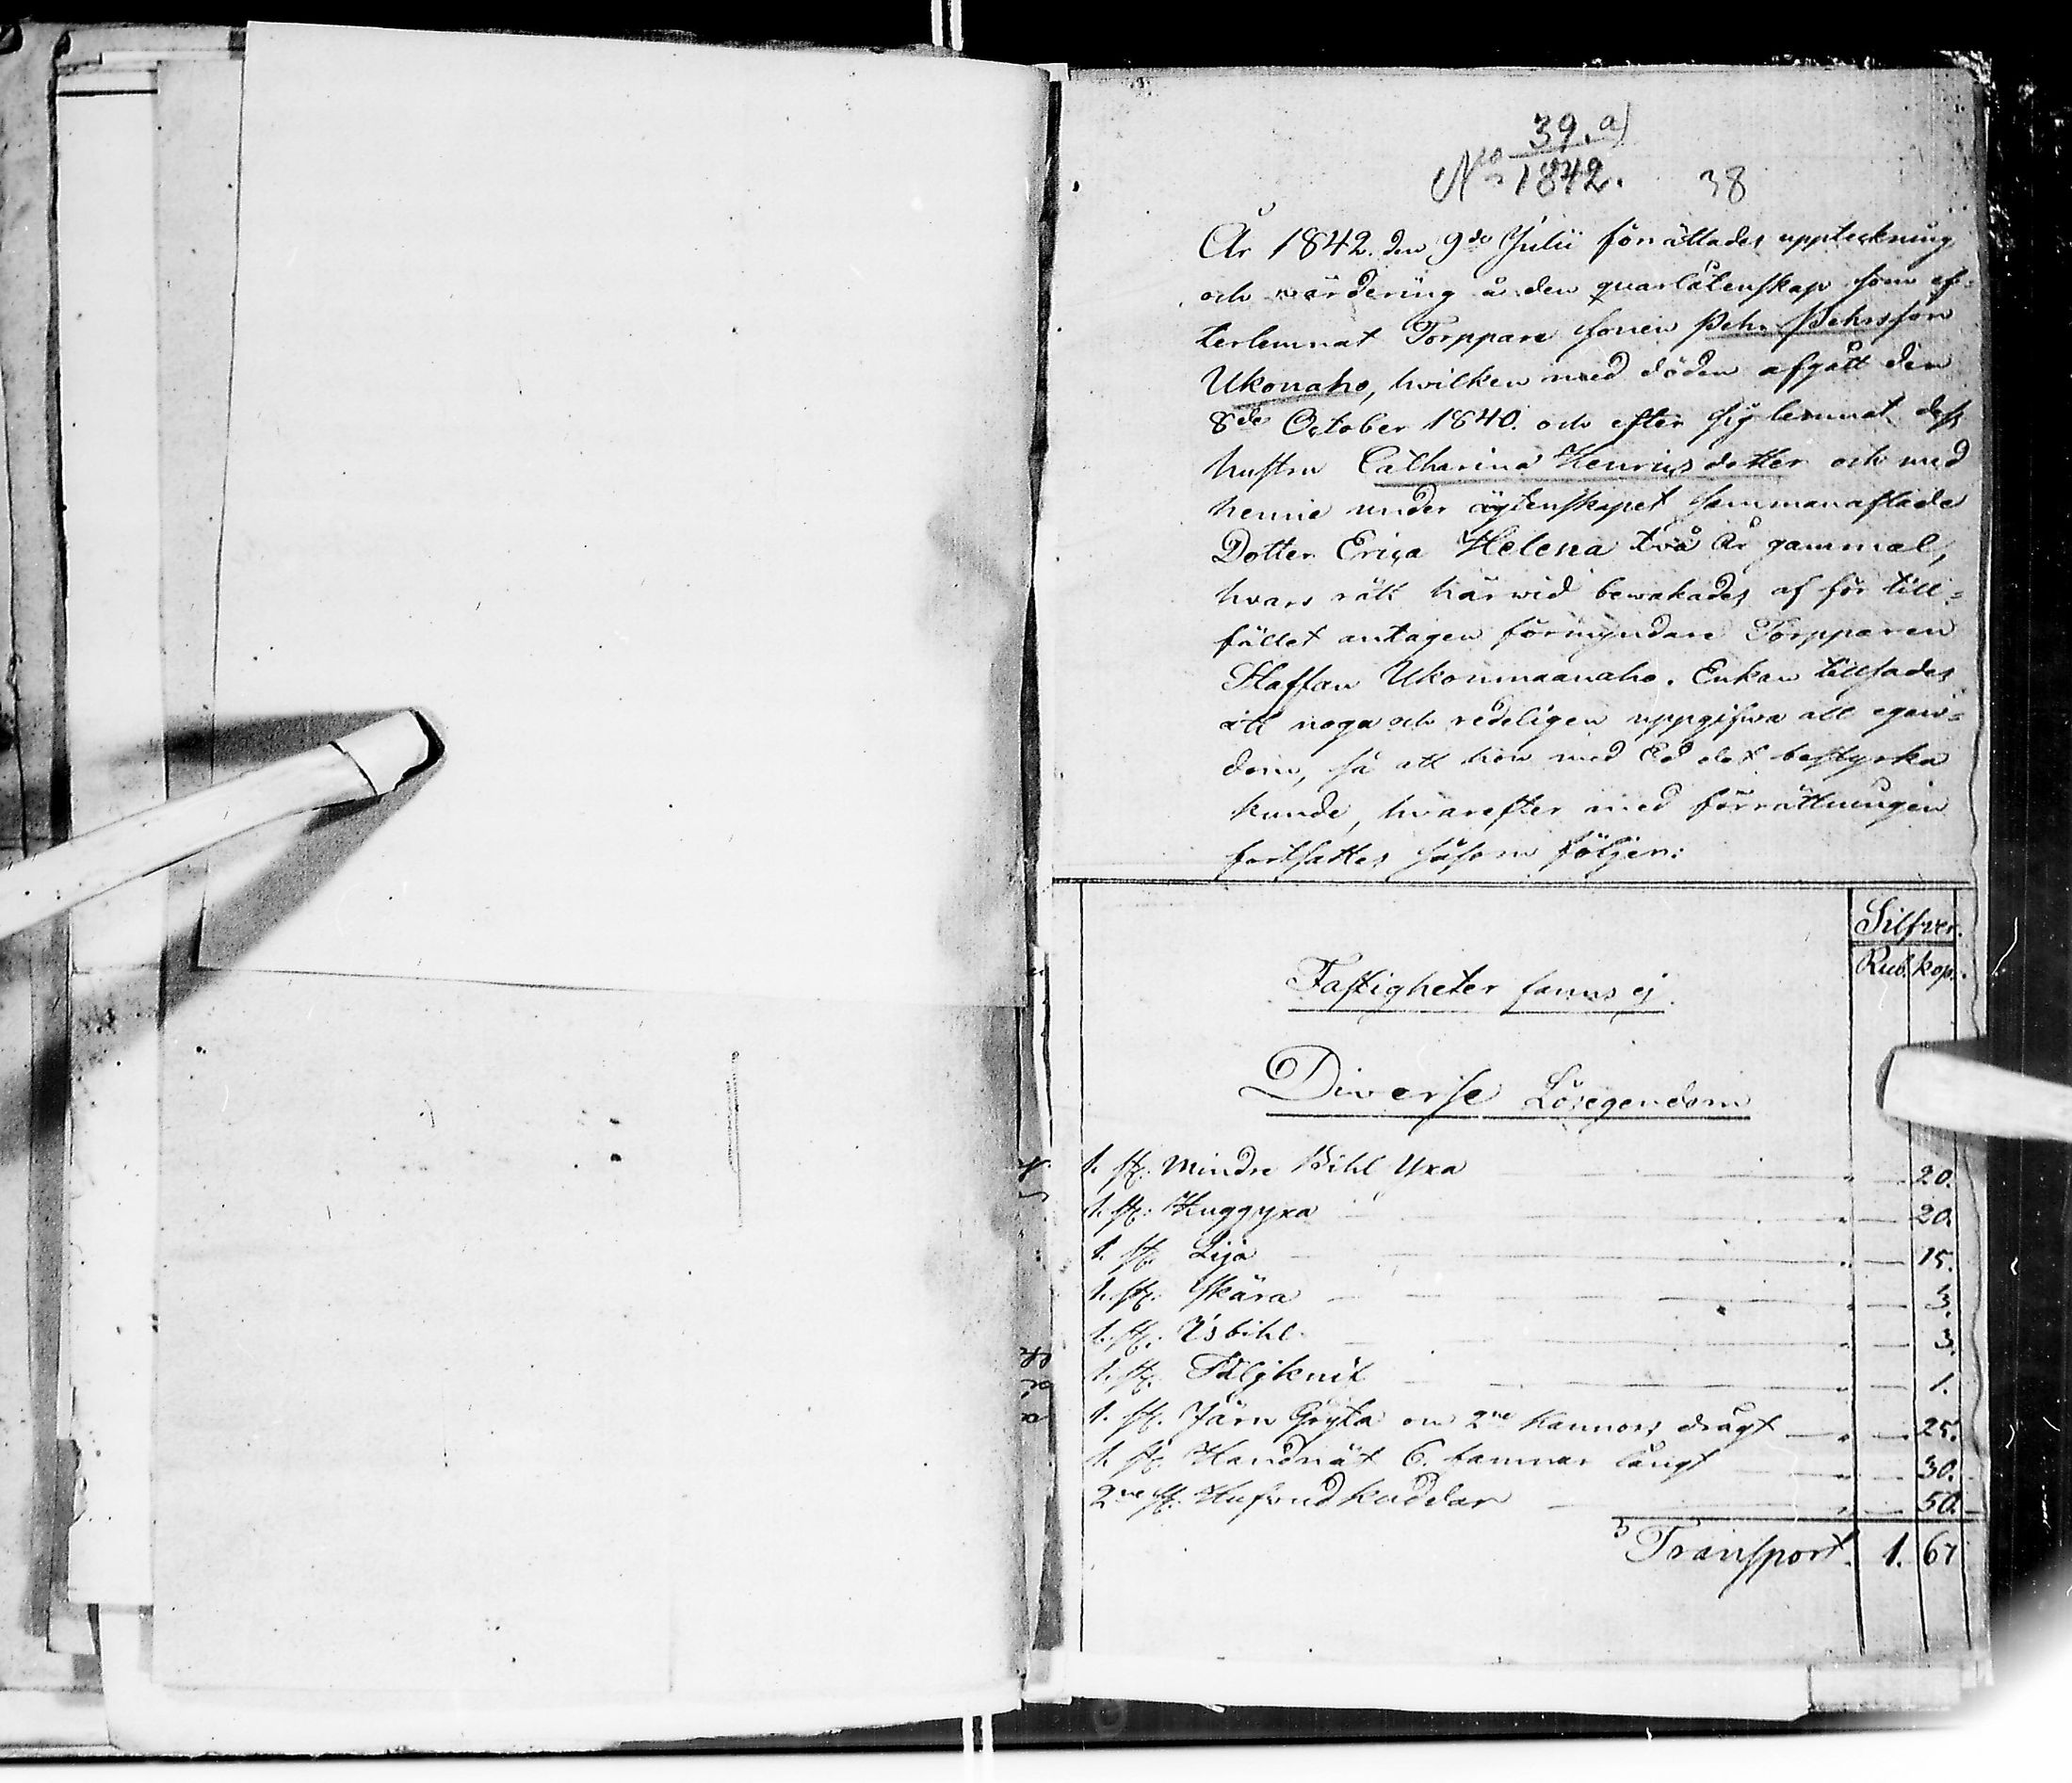 39. a)
No 1842. 38
År 1842. den 9de Julii förrättades uppteckning
och wärdering å den quarlåtenskap som ef-
terlemnat Torppare sonen Pehr Pehrsson
Ukonaho, hvilken med döden afgått den
8de October 1840. och efter sig lemnat dess
hustru Catharina Henricsdotter och med
henne under ägtenskapet sammanaflade
Dotter Erica Helena två år gammal,
hvars rätt härwid bewakades af för till-
fället antagen förmyndare Torpparen
Staffan Ukonmaanaho. Enkan tillsades
att noga och redeligen uppgifwa all egen-
dom, så att hon med Ed det bestyrka
kunde, hwarefter med förrättningen
fortsattes såsom följer:
Silfver.
Rub. kop.
Fastigheter fanns ej.
Diverse Lösegendom
1. st. mindre Bihl Yxa " 20.
1. st. Huggyxa " 20.
1. st. Lija " 15.
1. st. Skära " 3.
1. st. Isbihl " 3.
1. st. Täljknif " 1.
1. st. Järn Gryta om 2ne Kannors drägt " 25.
1. st. Handnät 6. famnar långt " 30.
2ne st. Hufvudkuddar " 50.
Transport. 1. 67